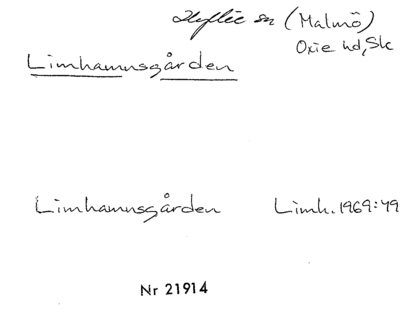 Hyllie sn (Malmö)
Oxie hd, Sk
Limhamnsgården
Limhamnsgården Limh. 1969:49
Nr 21914